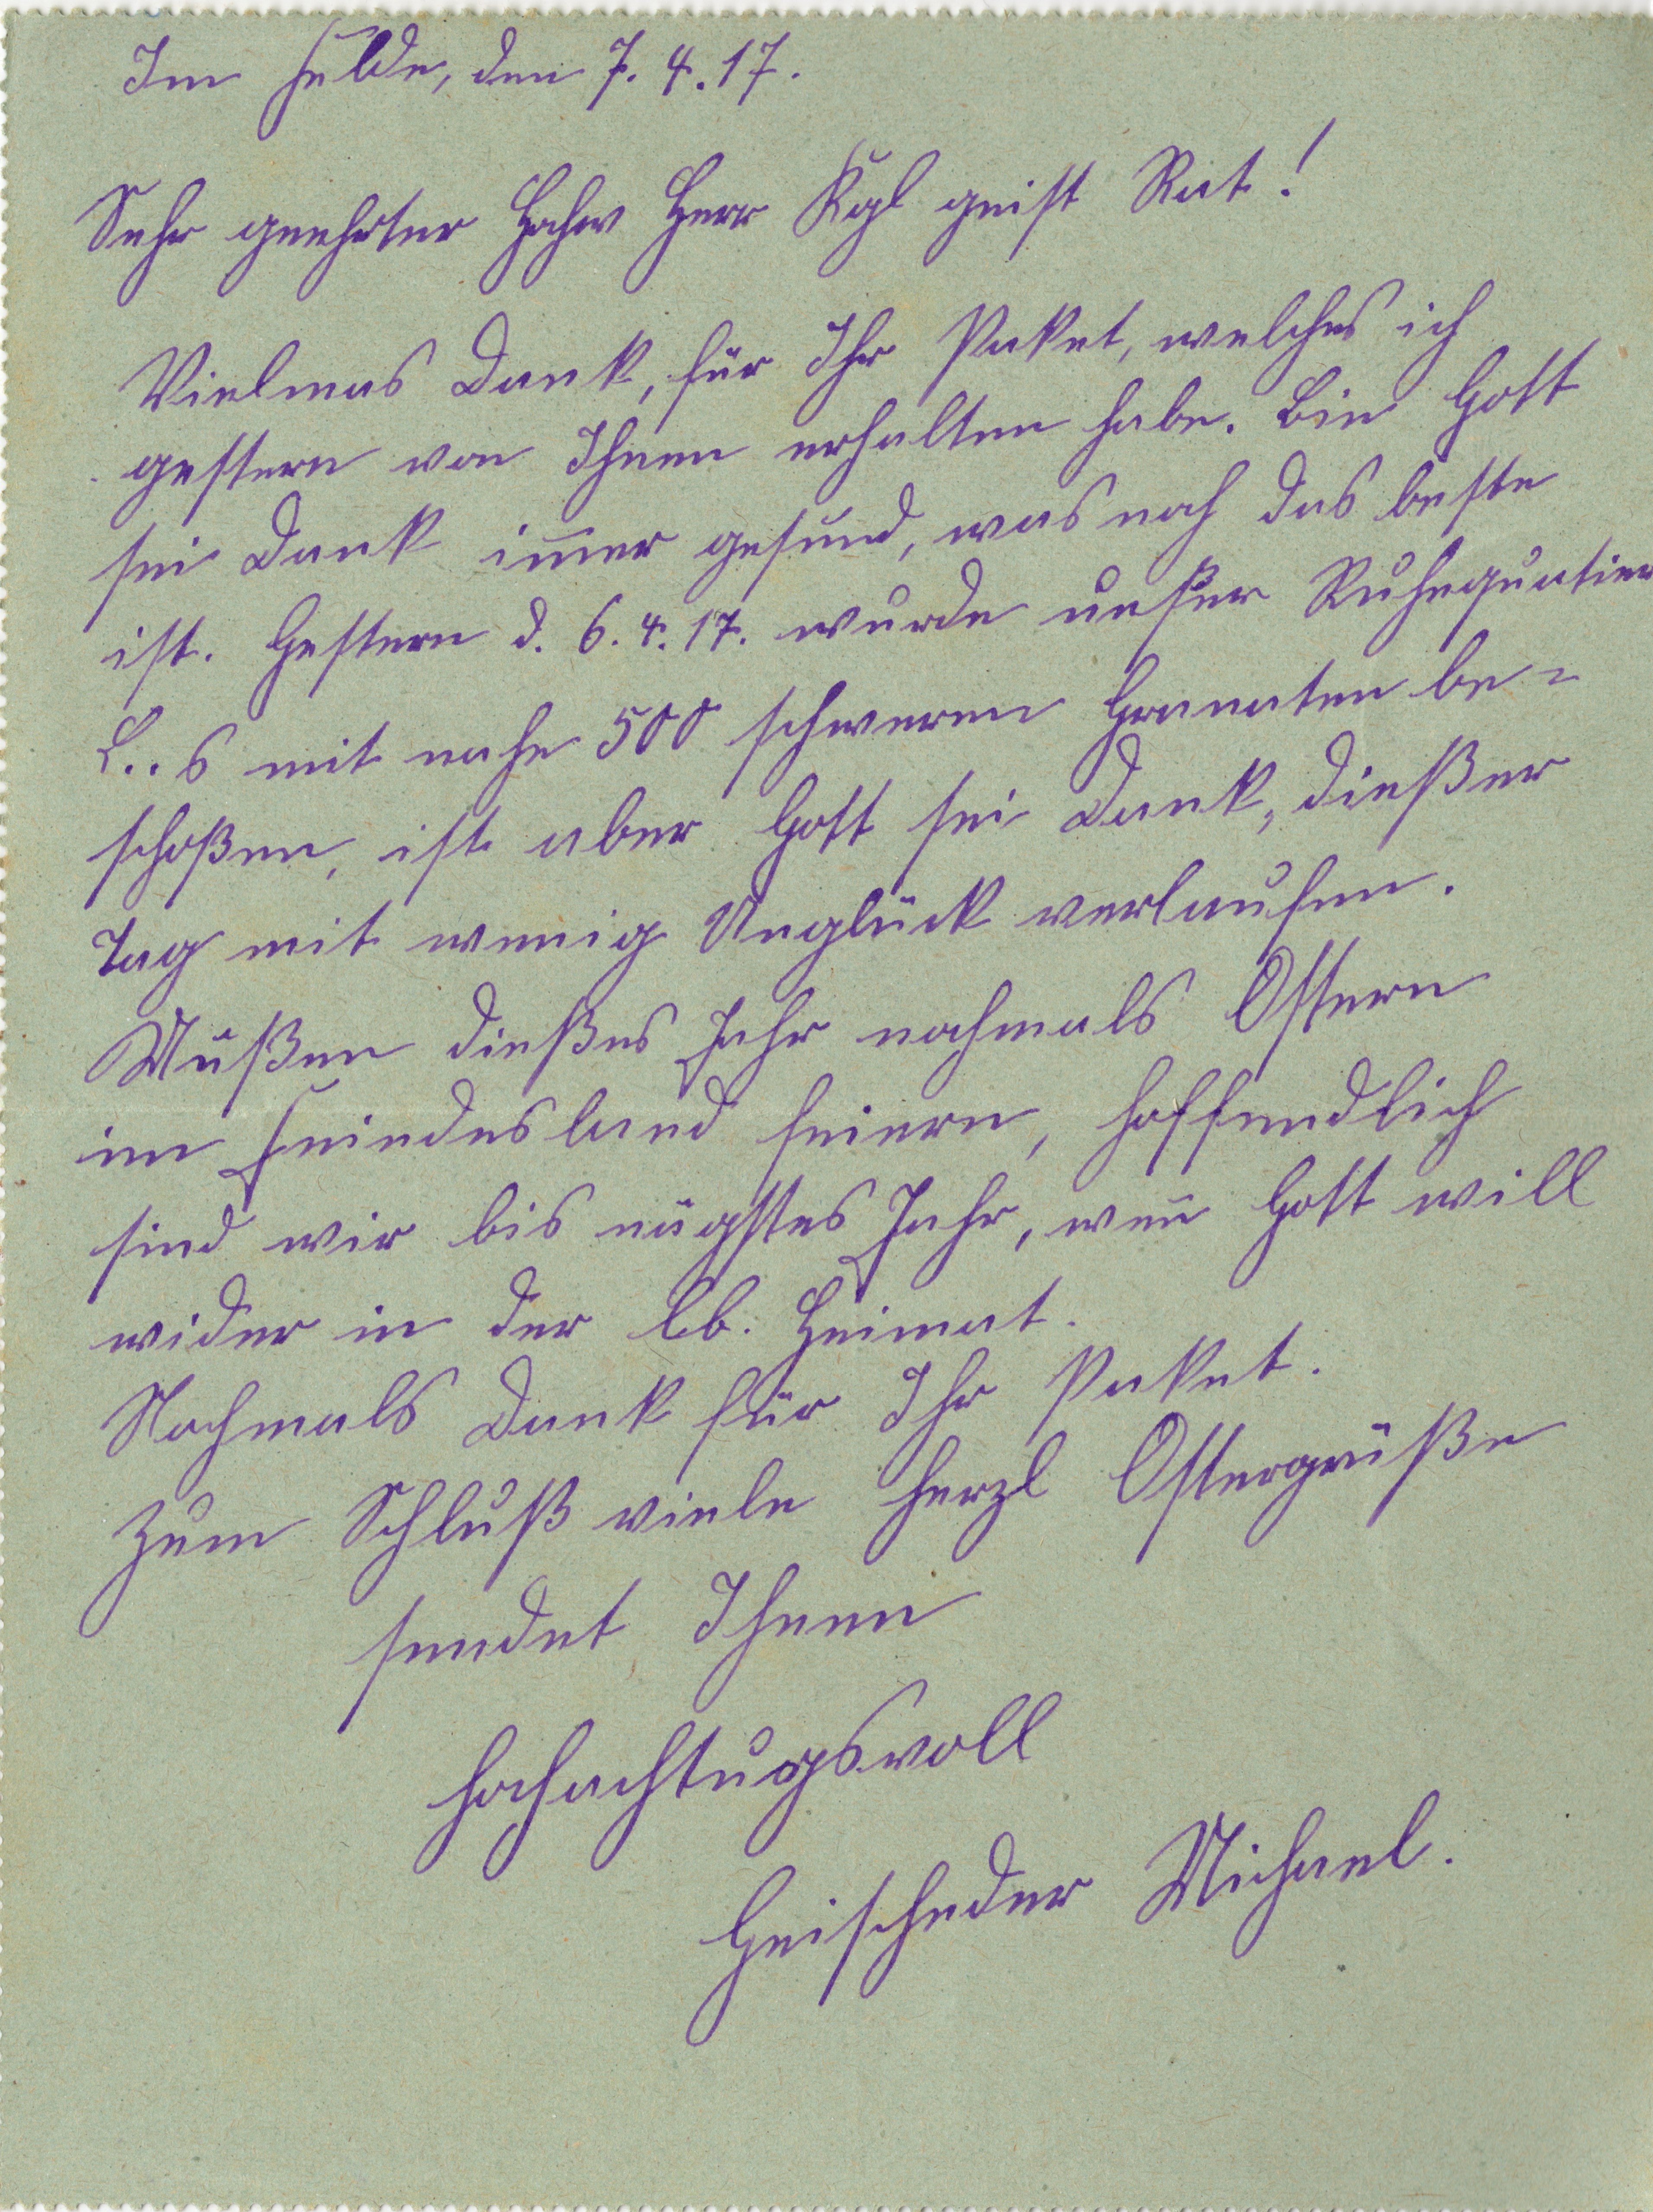 Im Felde, den 7. 4. 17.
Sehr geehrter Hochw Herr Kgl geist Rat!
Vielmas Dank, für Ihr Paket, welches ich
gestern von Ihnen erhalten habe. Bin Gott
sei Dank im̄er gesund, was noch das beste
ist. Gestern d. 6. 4. 17. wurde unser Ruhequatier
L..s mit nahe 500 schweren Granaten be-
schoßen, ist aber Gott sei Dank, dießer
Tag mit wenig Unglück verlaufen.
Müßen dießes Jahr nochmals Ostern
im Feindesland feiern, hoffendlich
sind wir bis nägstes Jahr, wen̄ Gott will
wider in der lb. Heimat.
Nochmals Dank für Ihr Paket.
Zum Schluß viele herzl Ostergrüße
sendet Ihnen
hochachtugsvoll
Geischeder Michael.